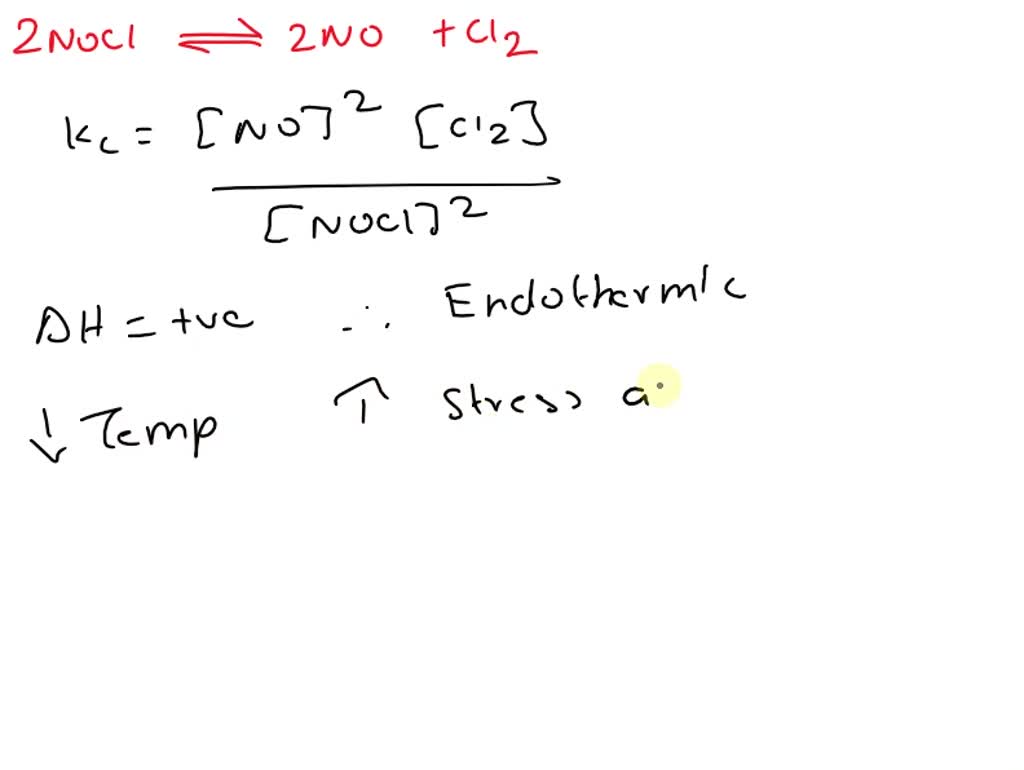 2NOCl ⇌ 2NO + Cl2
Kc = [NO]^2 [Cl2]
[NOCl]^2
ΔH = +ve ∴ Endothermic
↓ Temp ↑ Stress a